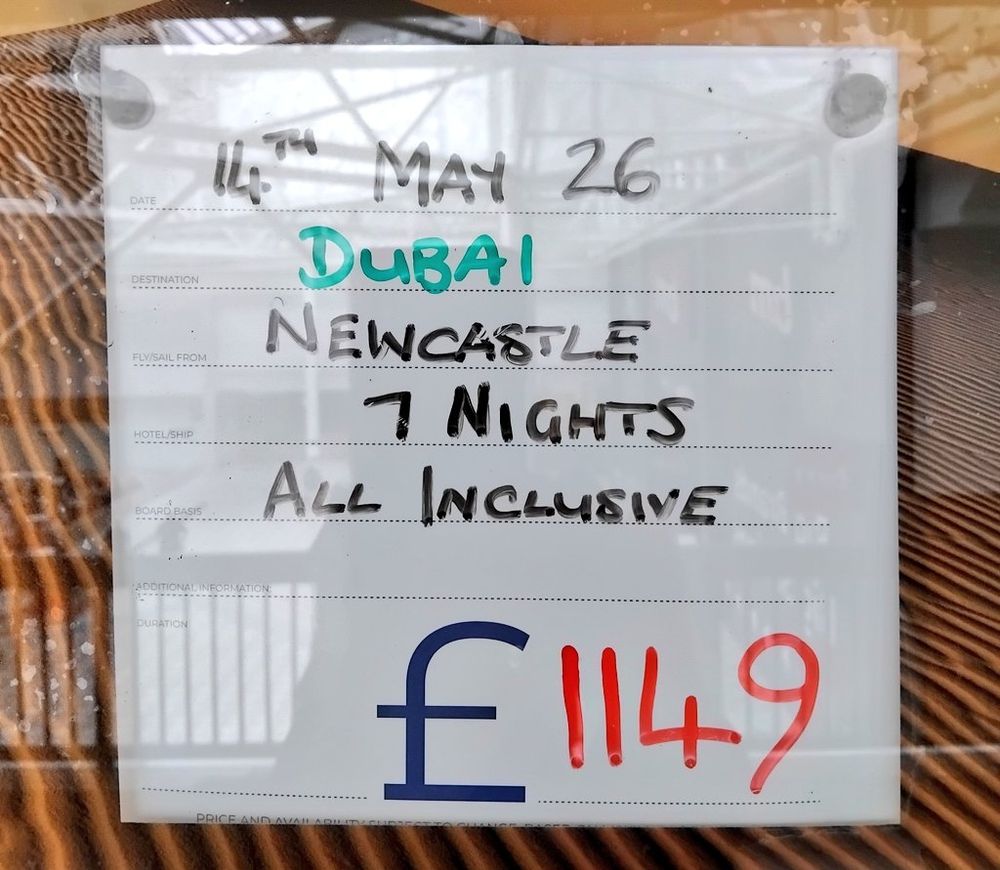 14TH MAY 26
DATE
DUBAI
DESTINATION
NEWCASTLE
FLY/SAIL FROM
7 NIGHTS
HOTEL/SHIP
ALL INCLUSIVE
BOARD BASIS
ADDITIONAL INFORMATION:
DURATION
£1149
PRICE AND AVAILABILITY SUBJECT TO CHANGE. BASED ON